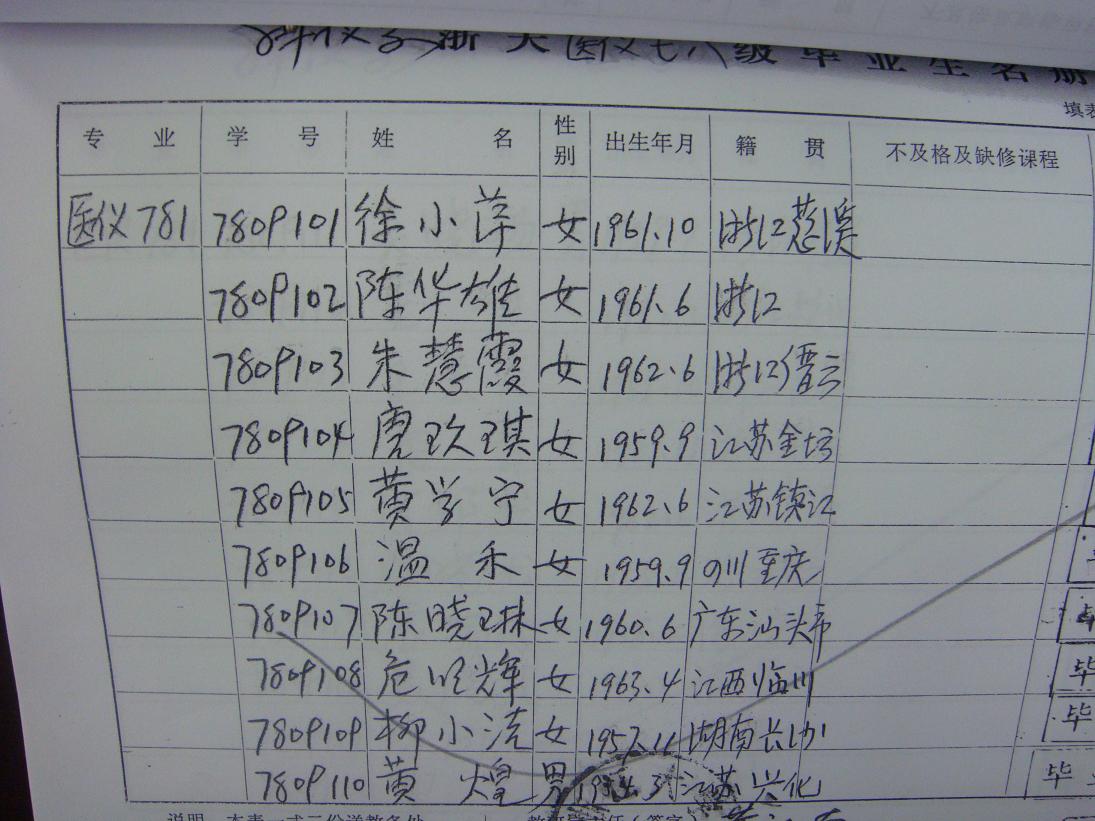 科仪系 浙大医仪七八级毕业生名册
填表
专业 学号 姓名 性别 出生年月 籍贯 不及格及缺修课程
医仪781 7809101 徐小萍 女 1961.10 浙江慈溪
7809102 陈华雄 女 1961.6 浙江
7809103 朱慧霞 女 1962.6 浙江缙云
7809104 虞玖琪 女 1959.9 江苏金坛
7809105 黄学宁 女 1962.6 江苏镇江
7809106 温禾 女 1959.9 四川重庆
7809107 陈晓琳 女 1960.6 广东汕头市
7809108 危 辉 女 1963.4 江西临川 毕
7809109 柳小洁 女 湖南长沙 毕
7809110 黄煌 男 江苏兴化 毕